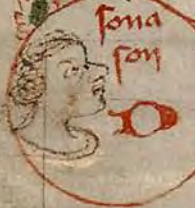 sona
son